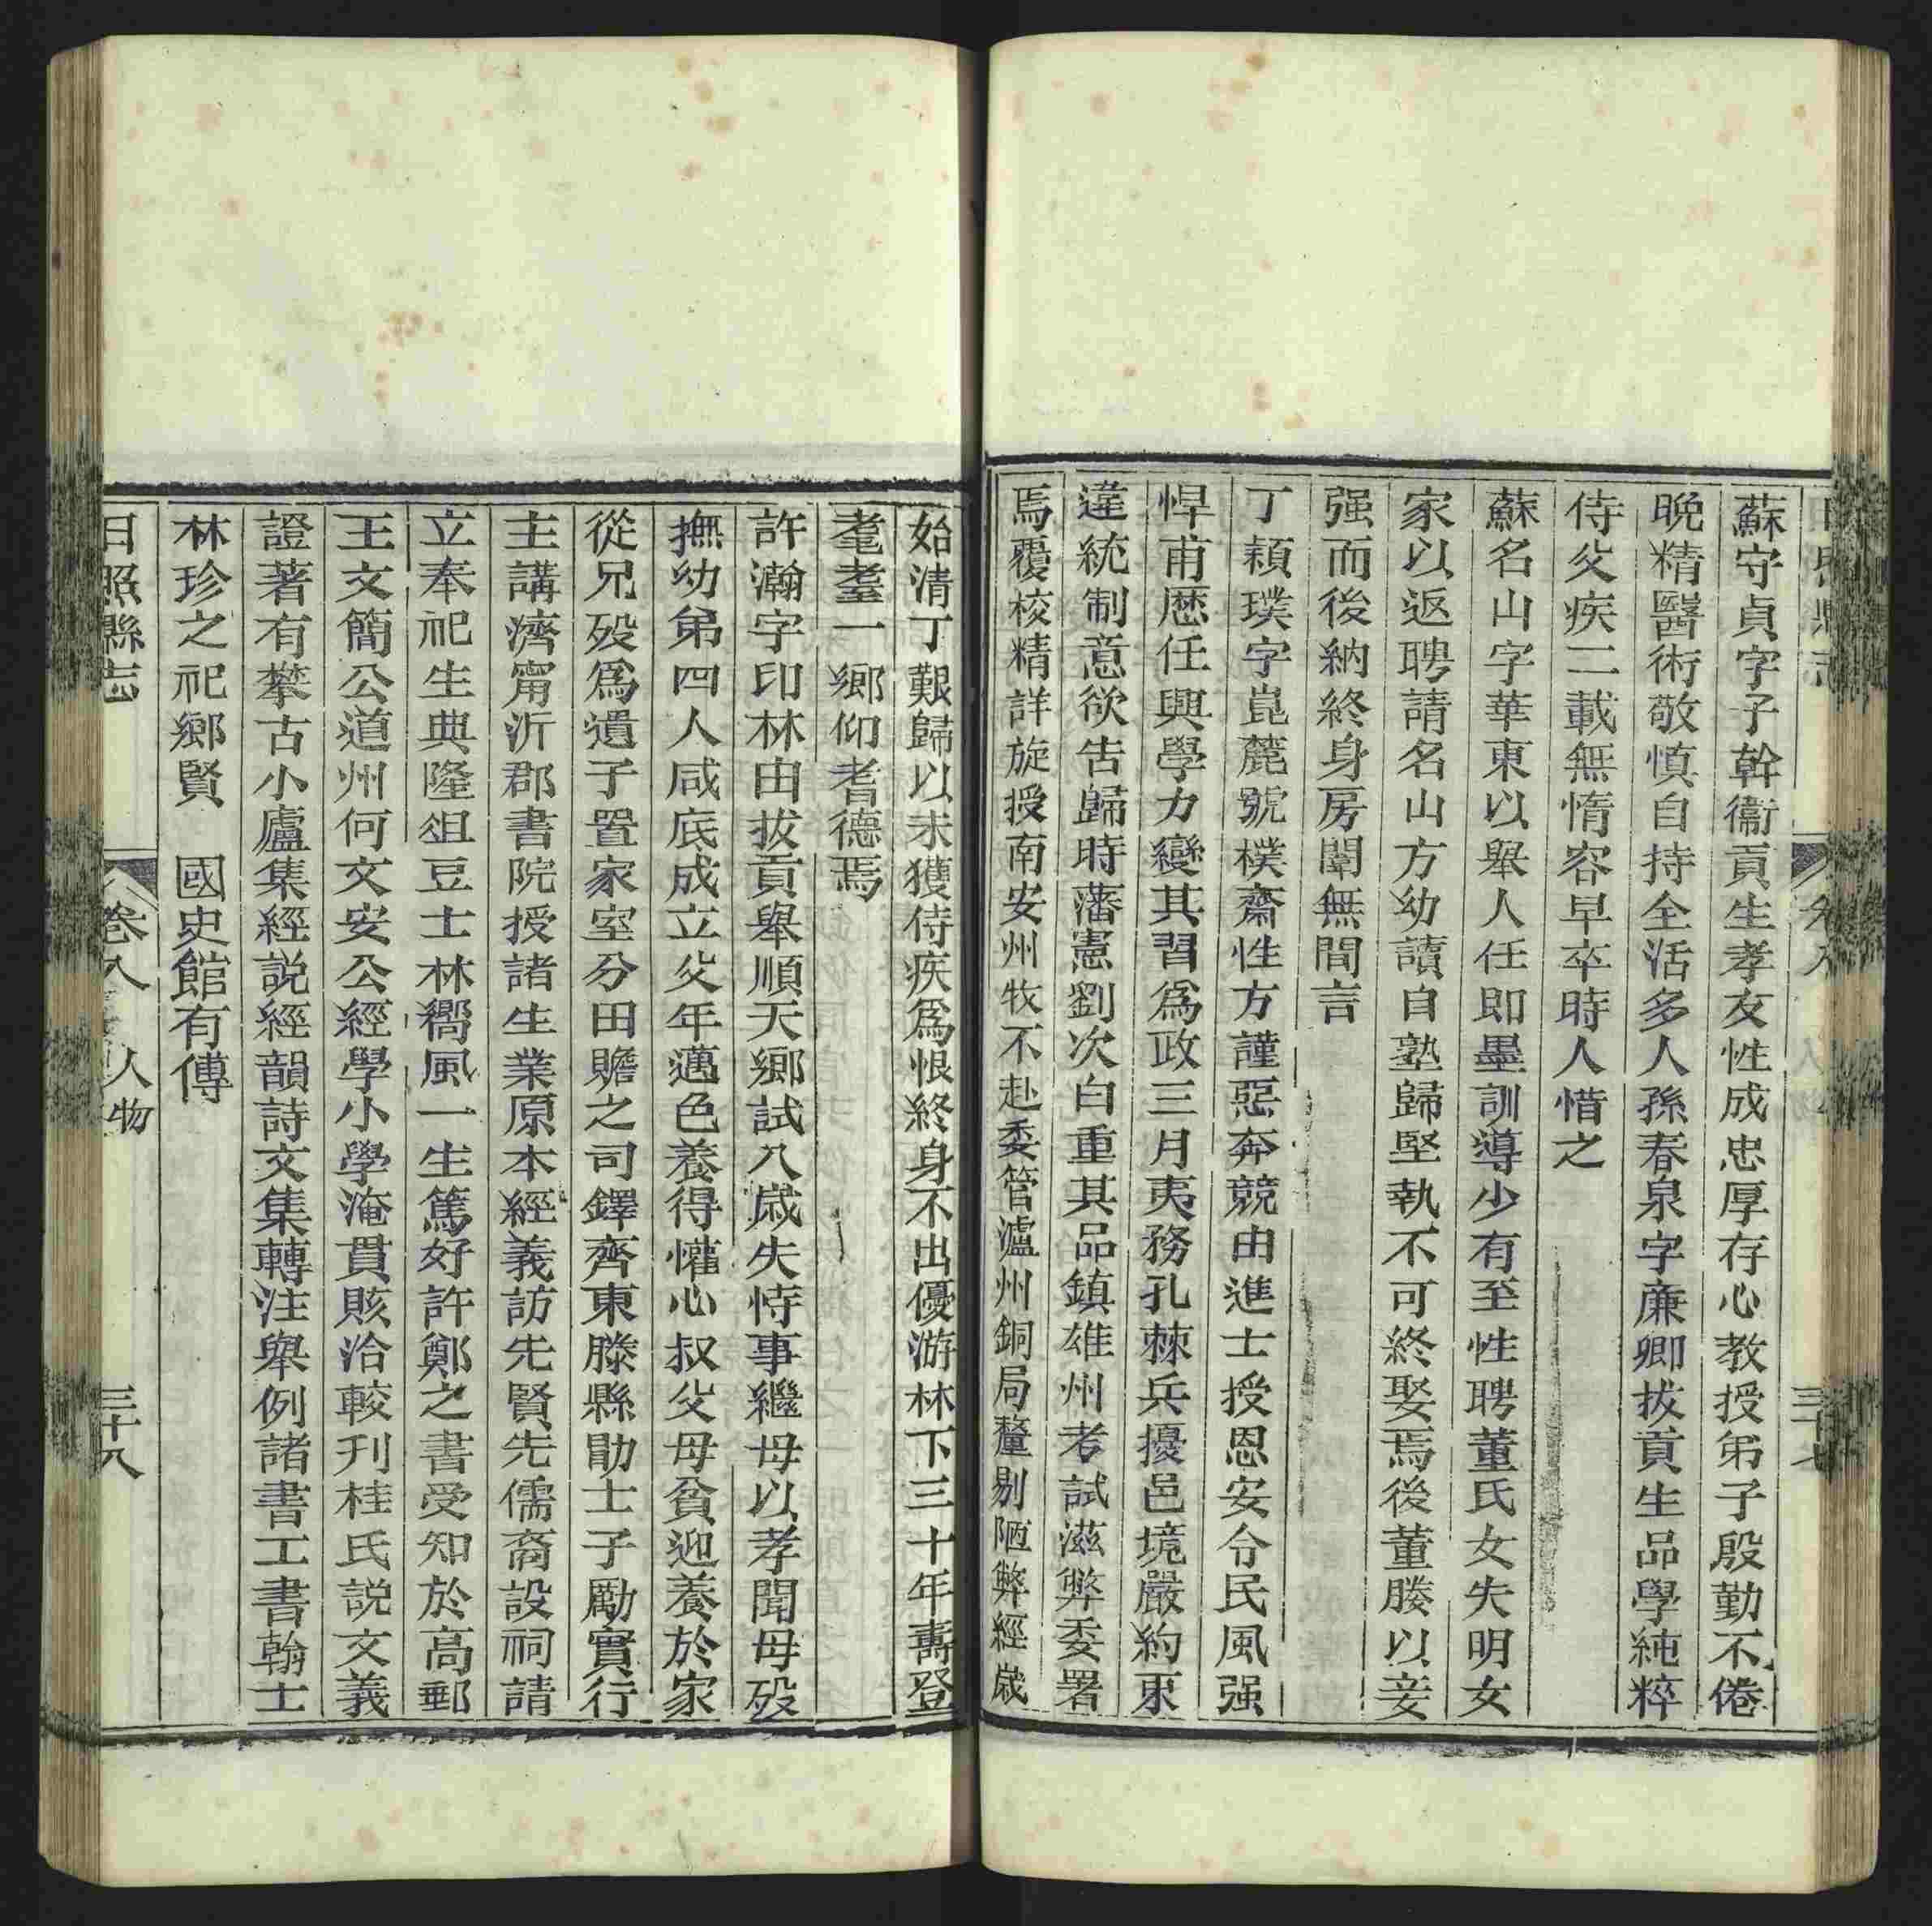 蘇守貞字子幹衞貢生孝友性成忠厚存心教授弟子殷勤不倦
晩精醫術敬慎自持全活多人孫春泉字廉卿拔貢生品學純粹
侍父疾二載無惰容早卒時人惜之
蘇名山字華東以舉人任即墨訓導少有至性聘董氏女失明女
家以返聘請名山方幼讀自塾歸堅執不可終娶焉後董媵以妾
强而後納終身房闈無間言
丁頴璞字崑麓號樸齋性方謹惡奔競由進士授恩安令民風强
悍甫歷任興學力變其習爲政三月夷務孔棘兵擾邑境嚴約束
違統制意欲告歸時藩憲劉次白重其品鎮雄州考試滋弊委署
焉覆校精詳旋授南安州牧不赴委管瀘州銅局釐剔陋弊經歲
始清丁艱歸以未獲侍疾爲恨終身不出優游林下三十年壽登
耄耋一鄉仰耆德焉
許瀚字印林由拔貢舉順天鄉試八歲失恃事繼母以孝聞母歿
撫幼弟四人咸底成立父年邁色養得懽心叔父母貧迎養於家
從兄歿爲遺子置家室分田贍之司鐸齊東滕縣勖士子勵實行
主講濟甯沂郡書院授諸生業原本經義訪先賢先儒裔設祠請
立奉祀生典隆俎豆士林嚮風一生篤好許鄭之書受知於高郵
王文簡公道州何文安公經學小學淹貫賅洽較刋桂氏説文義
證著有攀古小廬集經説經韻詩文集轉注舉例諸書工書翰士
林珍之祀鄉賢　國史館有傳
日照縣志　卷八　人物　三十八